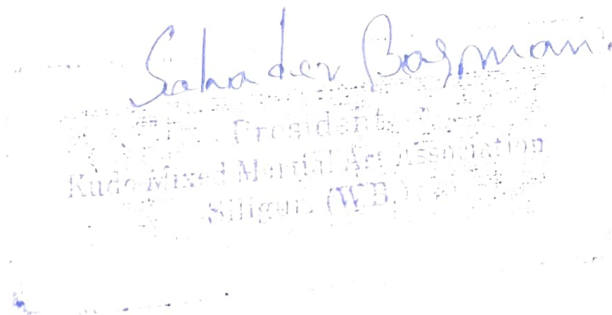 Sahadev Barman.
President
Kudo Mixed Martial Art Association
Siliguri (W.B.)